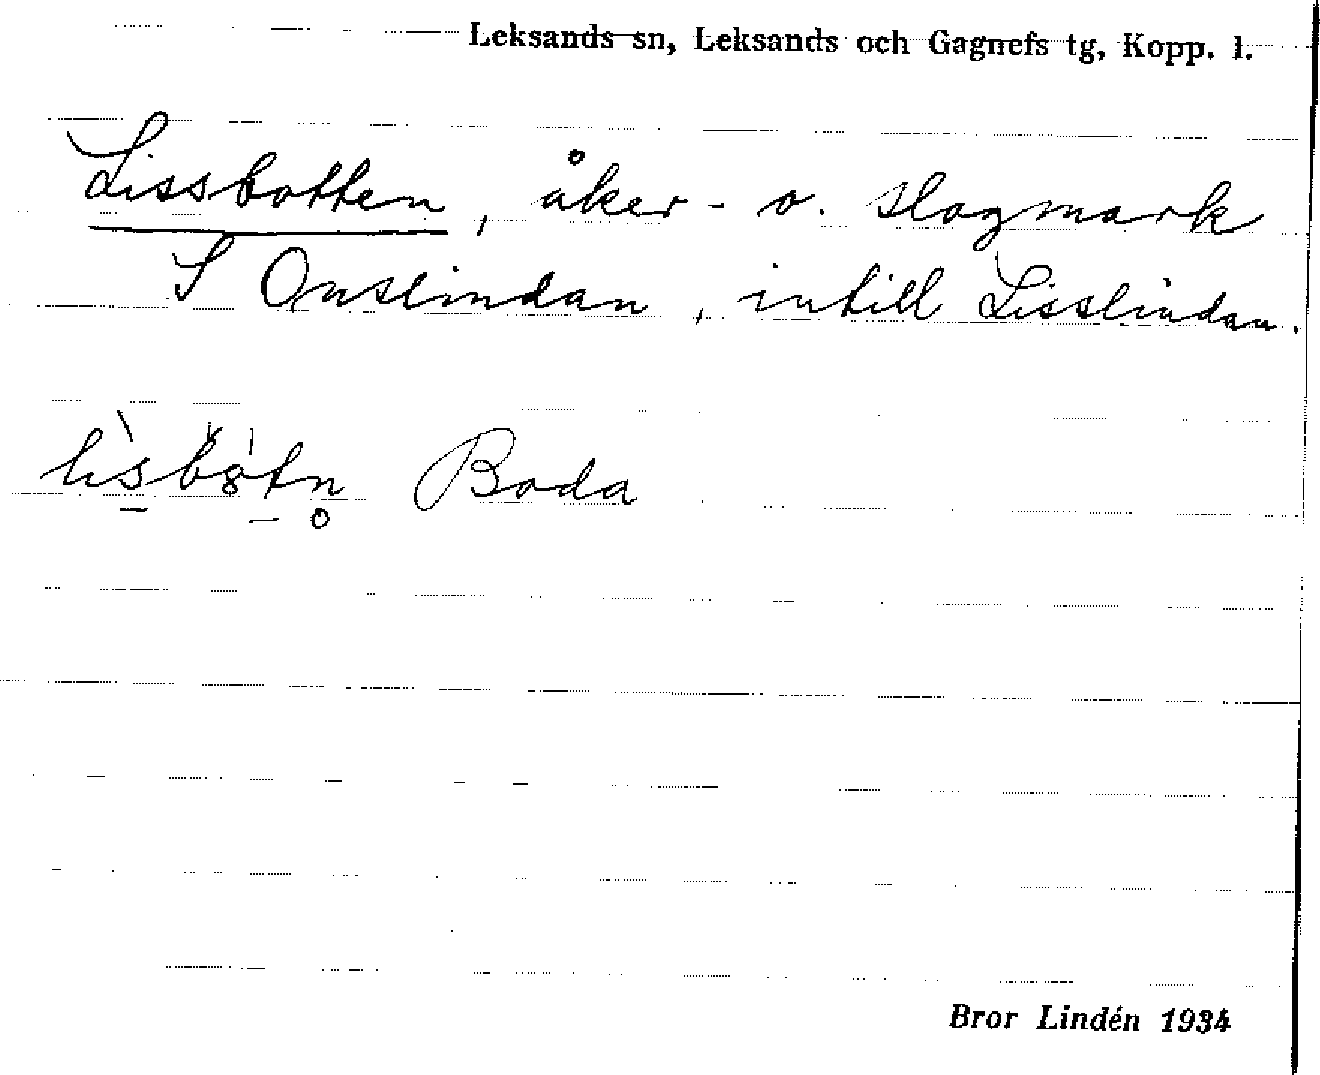 Leksands sn, Leksands och Gagnefs tg, Kopp. l.
Lissbotten, åker- o. slogmark
S Onslindan, intill Lisslindan.
Boda
Bror Lindén 1934